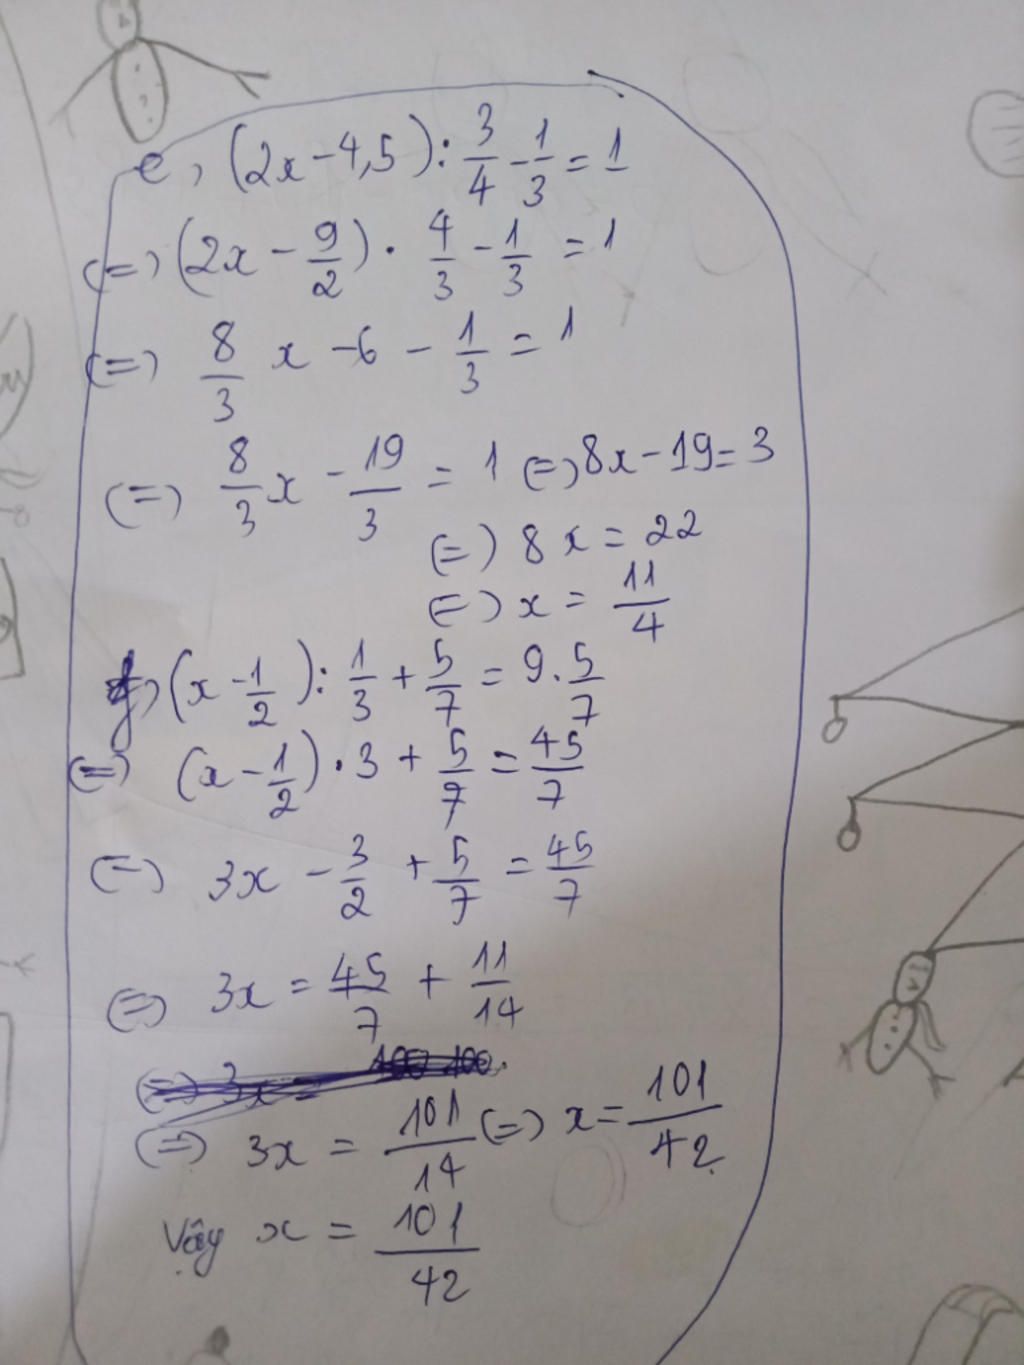 e, (2x - 4,5) : 3/4 - 1/3 = 1
(=) (2x - 9/2) . 4/3 - 1/3 = 1
(=) 8/3 x - 6 - 1/3 = 1
(=) 8/3 x - 19/3 = 1 (=) 8x - 19 = 3
(=) 8x = 22
(=) x = 11/4
f, (x - 1/2) : 1/3 + 5/7 = 9 . 5/7
(=) (x - 1/2) . 3 + 5/7 = 45/7
(=) 3x - 3/2 + 5/7 = 45/7
(=) 3x = 45/7 + 11/14
(=) 3x = 101/14 (=) x = 101/42
Vậy x = 101/42